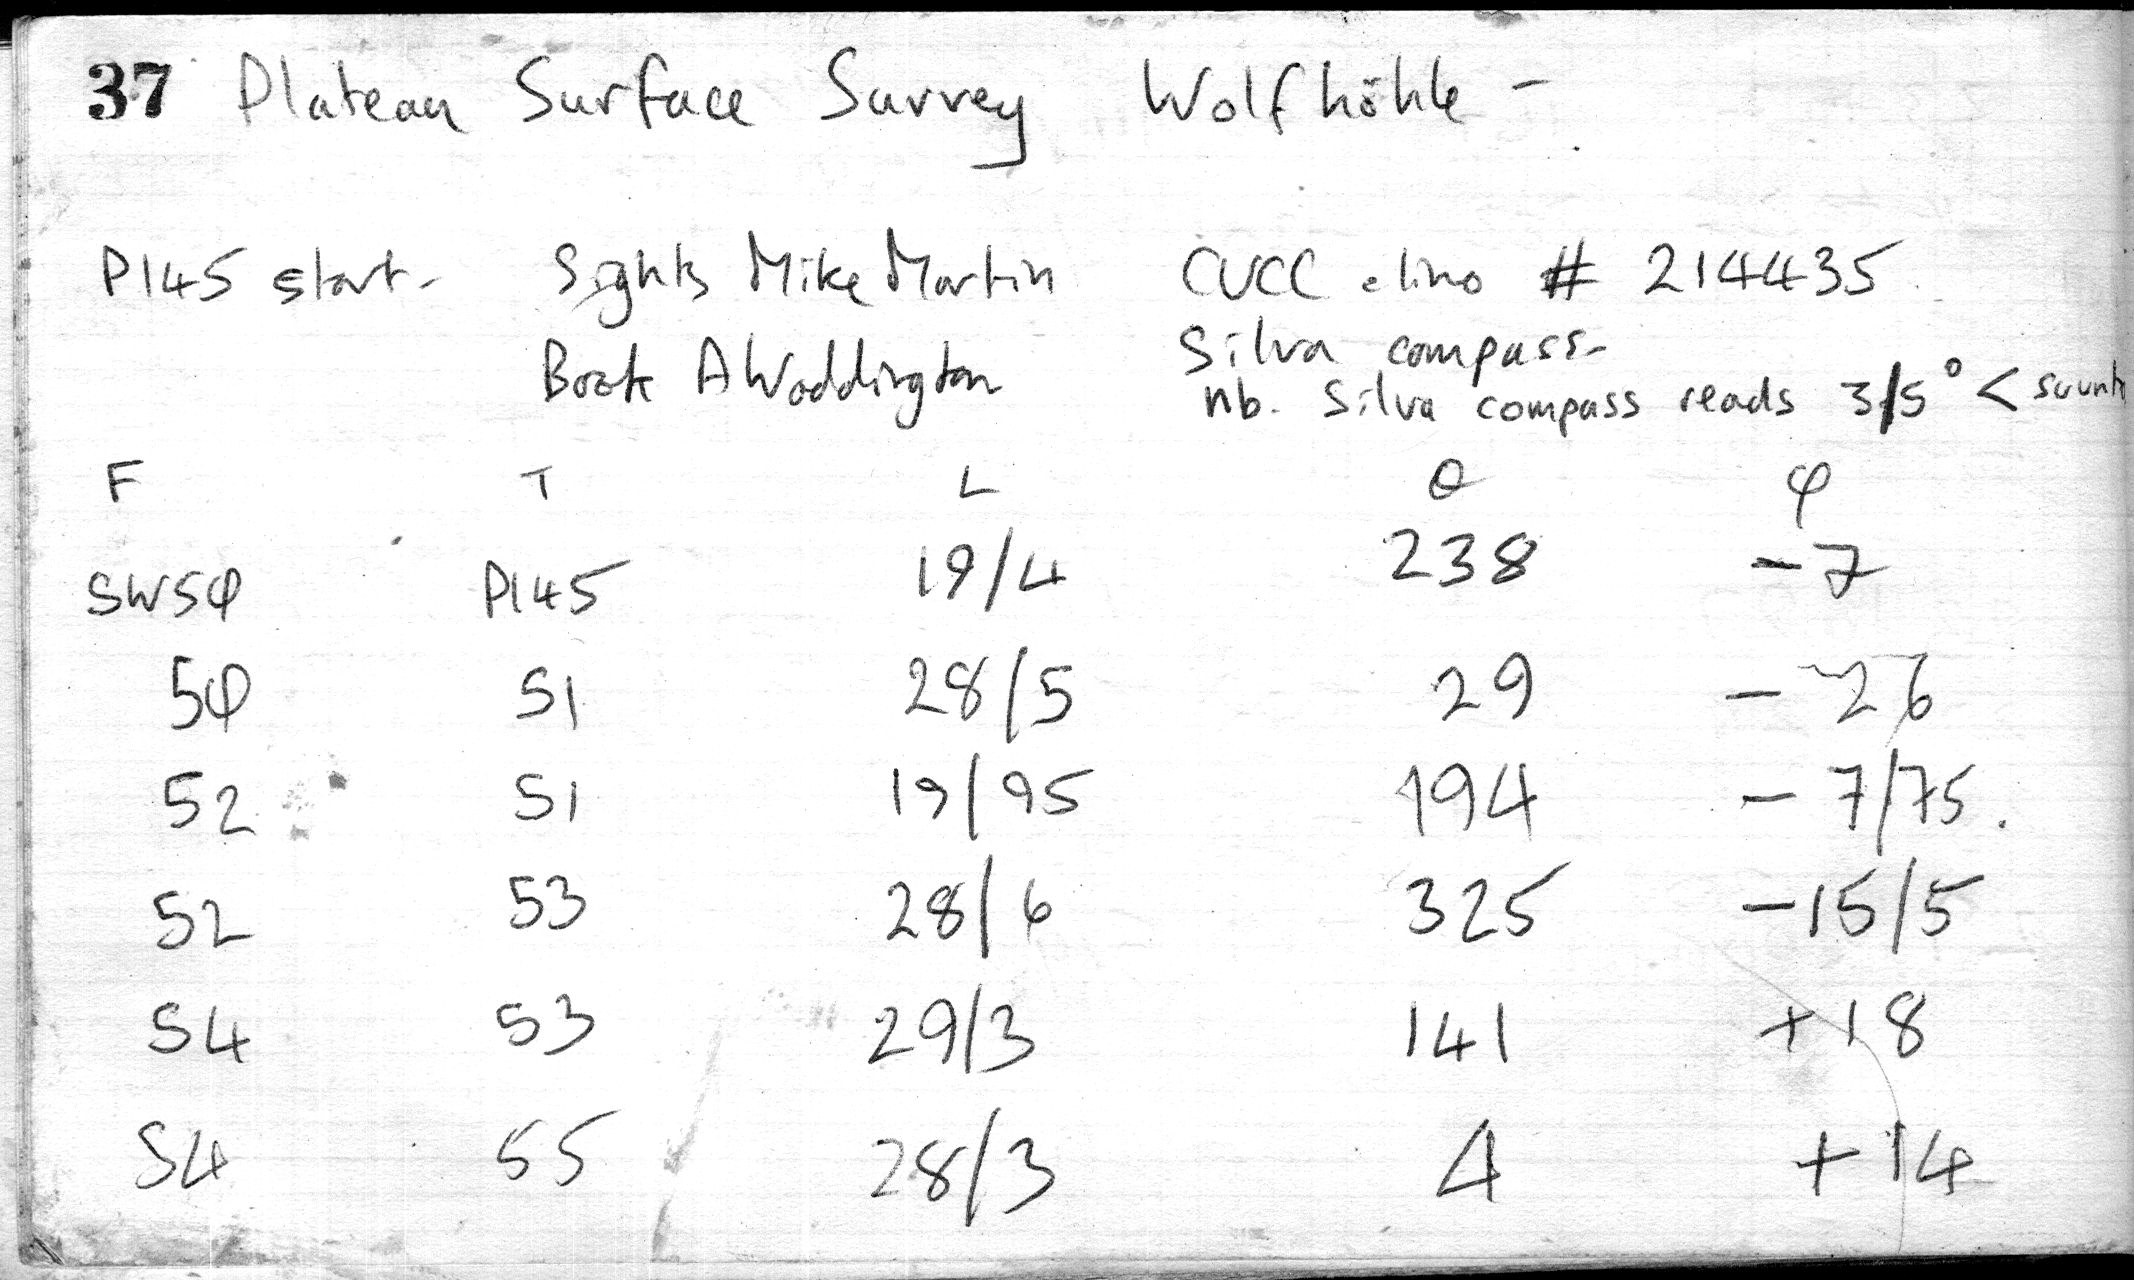 37 Plateau Surface Survey Wolfhöhle -
P145 start- Sights Mike Martin CUCC clino # 214435
Book A Waddington Silva compass-
nb. Silva compass reads 3/5° < suunto
F T L θ φ
SW5φ P145 19/4 238 -7
5φ 51 28/5 29 -26
52 51 19/95 194 -7/75.
52 53 28/6 325 -15/5
54 53 29/3 141 +18
54 55 28/3 4 +14